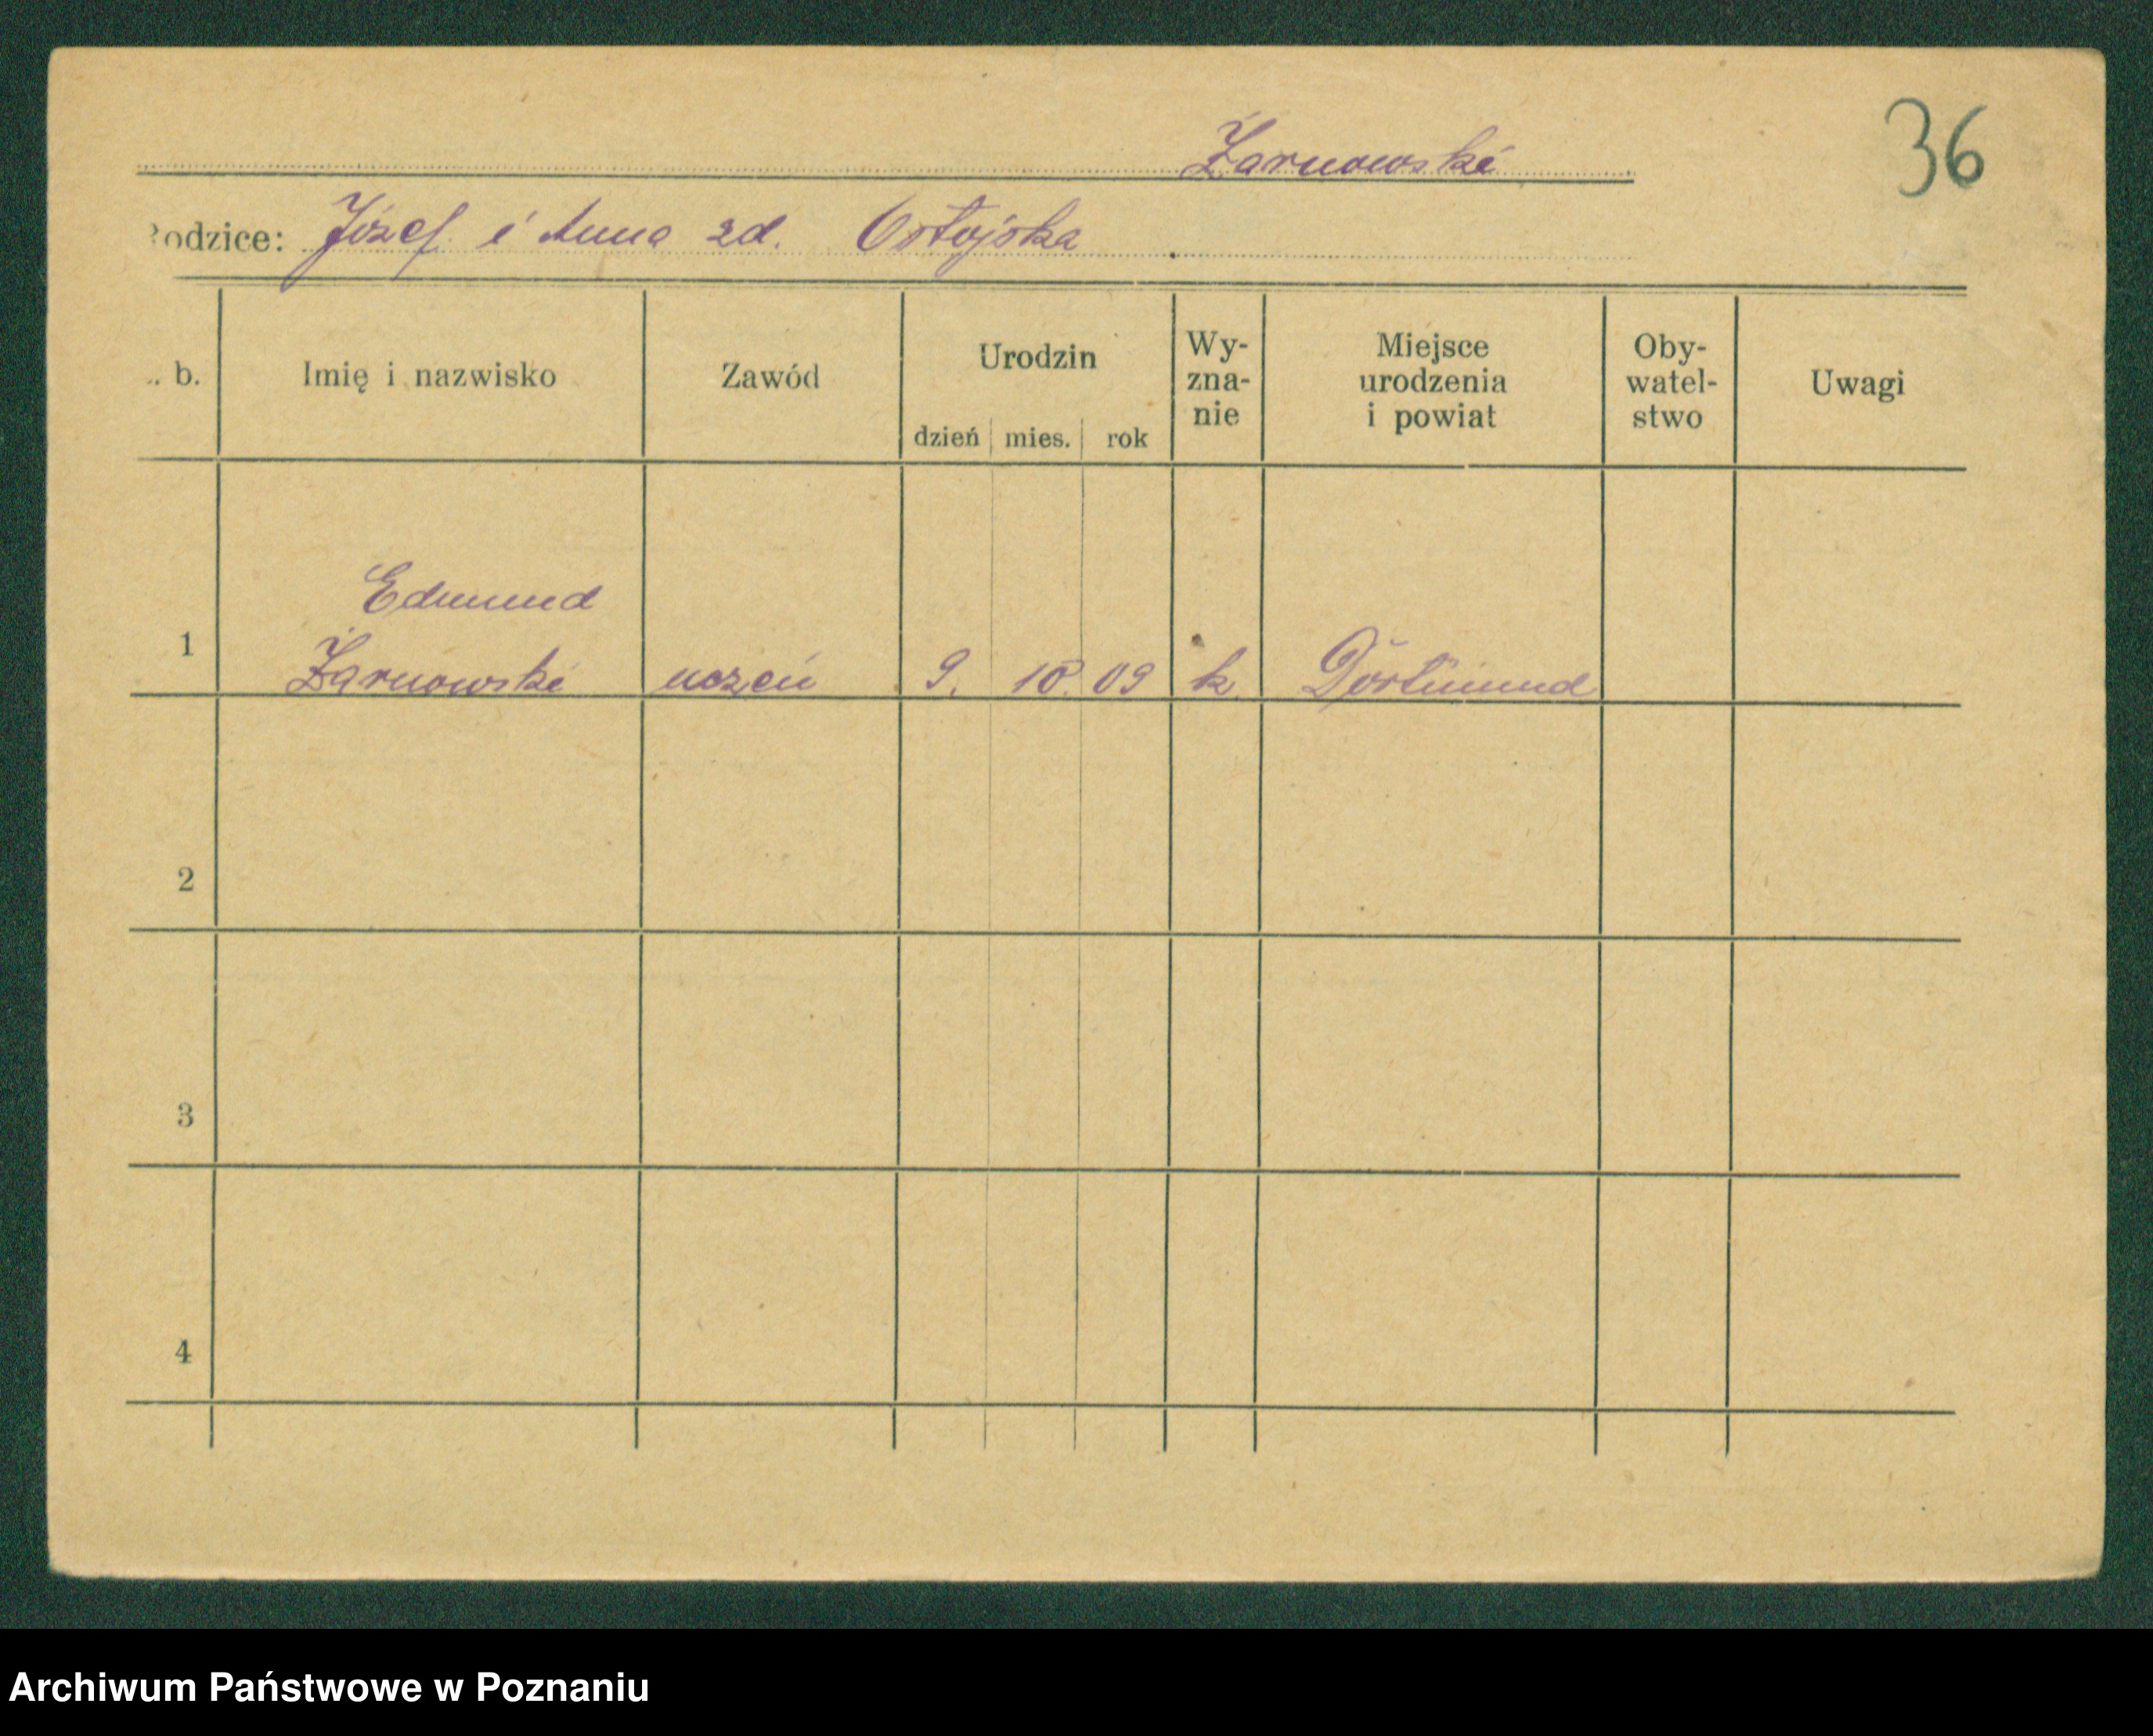 36
Żarnowski
Rodzice: Józef i Anna zd. Ostojska
. b.
Imię i nazwisko
Zawód
Urodzin
dzień mies. rok
Wy-
zna-
nie
Miejsce
urodzenia
i powiat
Oby-
watel-
stwo
Uwagi
1
Edmund
Żarnowski
uczeń
9. 10. 09
k
Dortmund
2
3
4
Archiwum Państwowe w Poznaniu